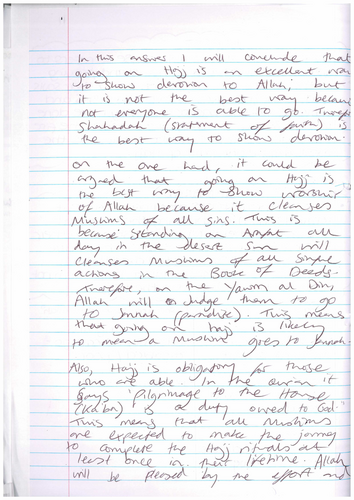 In this answer I will conclude that
going on Hajj is an excellent way
to show devotion to Allah, but
it is not the best way because
not everyone is able to go. Therefore
Shahadah (statement of faith) is
the best way to show devotion.
On the one hand, it could be
argued that going on Hajj is
the best way to show worship
of Allah because it cleanses
Muslims of all sins. This is
because standing on Arafat all
day in the desert sun will
cleanses Muslims of all sinful
actions in the Book of Deeds.
Therefore, on the Yawm al Din,
Allah will judge them to go
to Jannah (paradise). This means
that going on hajj is likely
to mean a Muslim goes to Jannah.
Also, Hajj is obligatory for those
who are able. In the Quran it
says 'Pilgrimage to the House
(Ka'ba) is a duty owed to God.'
This means that all Muslims
are expected to make the journey
to complete the Hajj rituals at
least once in their lifetime. Allah
will be pleased by the effort and